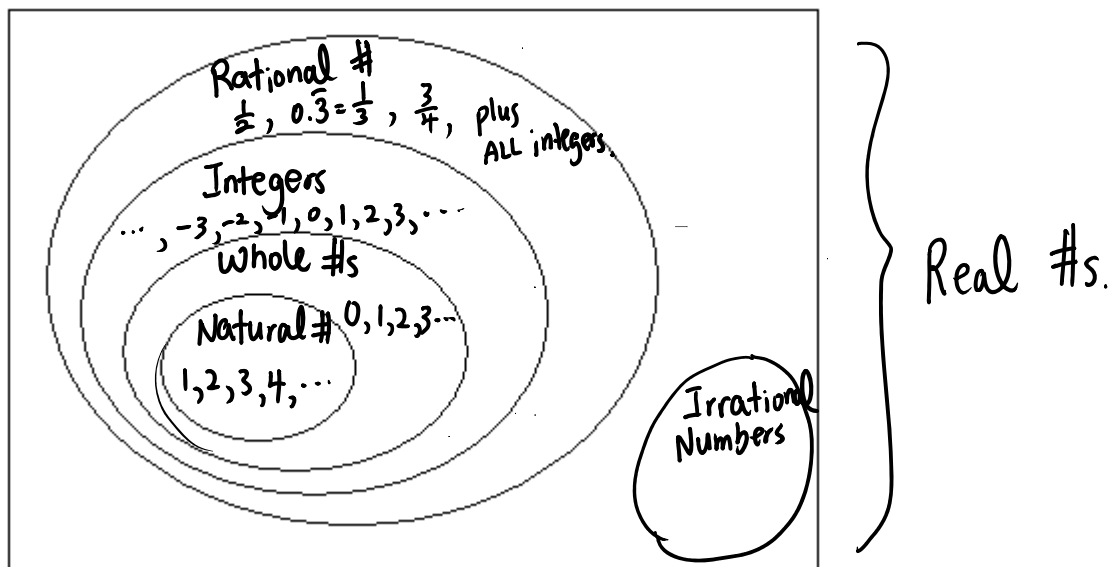 Rational #
1/2, 0.3̅ = 1/3, 3/4, plus
ALL integers.
Integers
..., -3, -2, -1, 0, 1, 2, 3, ...
Whole #s
Natural #
0, 1, 2, 3...
1, 2, 3, 4, ...
Irrational
Numbers
Real #s.